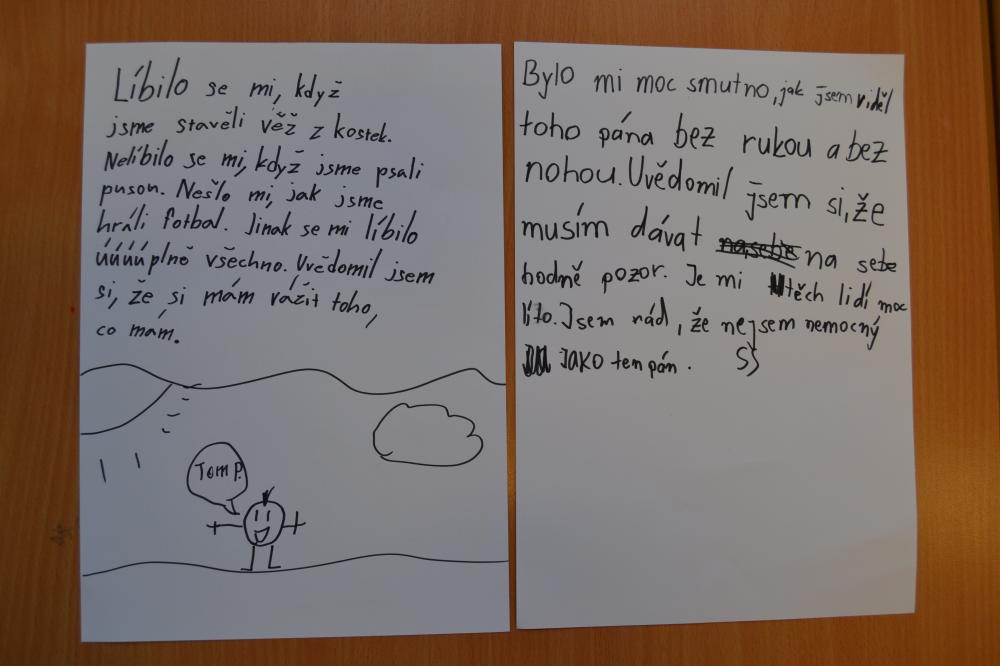 Líbilo se mi, když
jsme stavěli věž z kostek.
Nelíbilo se mi, když jsme psali
pusou. Nešlo mi, jak jsme
hráli fotbal. Jinak se mi líbilo
úúúúplně všechno. Uvědomil jsem
si, že si mám vážit toho,
co mám.
Tom P.
Bylo mi moc smutno, jak jsem viděl
toho pána bez rukou a bez
nohou. Uvědomil jsem si, že
musím dávat na sebe na sebe
hodně pozor. Je mi těch lidí moc
líto. Jsem rád, že nejsem nemocný
JAKO ten pán. SS